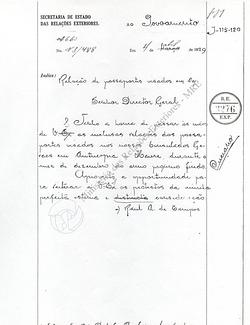 SECRETARIA DE ESTADO
DAS RELAÇÕES EXTERIORES.
ao Povoamento
J-115-120
Em 4 de 1929
Indice: Relação de passaportes visados em
R. E.
3276
EXP.
Senhor Director Geral
Tenho a honra de passar ás mãos
de V. as inclusas relações dos passa-
portes visados nos nossos Consulados Geraes
em Antuerpia e Havre durante o
mez de dezembro do anno proximo findo.
Aproveito a opportunidade pa-
ra reiterar os protestos da minha
perfeita estima e distincta consideração
a) Raul A. de Campos